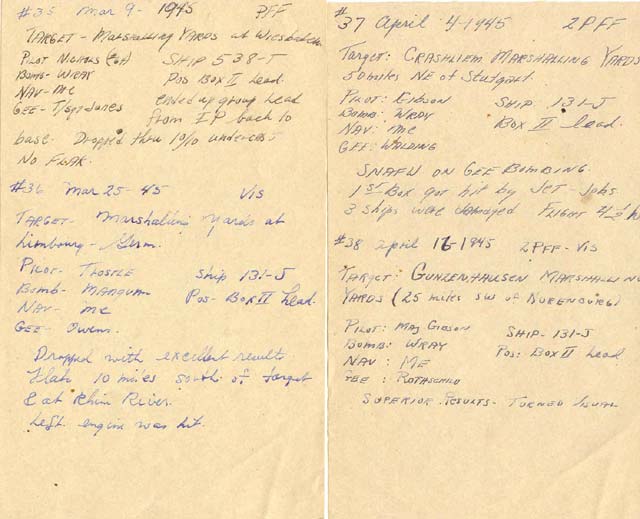 #35 Mar 9- 1945 PFF
TARGET- Marshalling YARDS at Wiesbaden
PILOT NICHOLS SHIP 538-T
BOMB- WRAY Pos Box II lead.
NAV- Me ended up group lead
GEE- T/Sgt Jones from IP back to
base. Dropped thru 10/10 undercast
No FLAK.
#36 Mar 25- 45 VIS
TARGET- Marshalling yards at
Limbourg- Germ.
PILOT- Ship 131-J
Bomb- Mangum Pos- Box II lead.
NAV- me
GEE- Owens.
Dropped with excellent results
Flak 10 miles south of target
& at Rhine River.
Left engine was hit.
#37 April 4-1945 2PFF
Target: CRASHLIEM MARSHALLING YARDS
50 miles NE of Stutgart.
PILOT: Gibson SHIP. 131-J
BOMB: WRAY BOX II lead.
NAV: Me
GEE: WALDING
SNAFU ON GEE BOMBING.
1st Box got hit by JET-Jobs
3 ships were damaged FLIGHT 4½ h
#38 april 16-1945 2PFF-VIS
TARGET: GUNZENHAUSEN MARSHALLING
YARDS (25 miles SW of NURENBURG)
PILOT: MAJ GIBSON SHIP- 131-J
BOMB: WRAY Pos: Box II lead
NAV: ME
GEE: ROTHSCHILD
SUPERIOR RESULTS- TURNED VISUAL